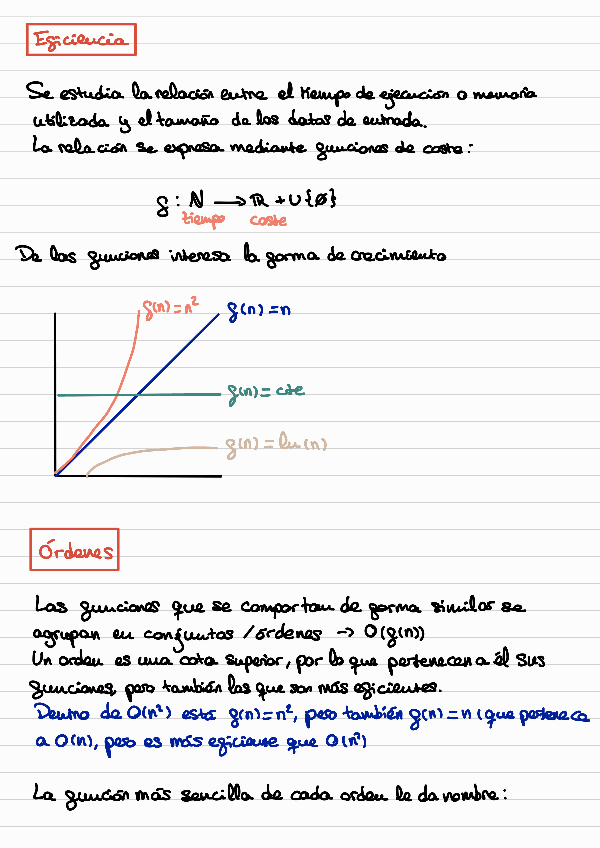 Eficiencia
Se estudia la relación entre el tiempo de ejecución o memoria
utilizada y el tamaño de los datos de entrada.
La relación se expresa mediante funciones de coste:
f: ℕ → ℝ + ∪ {ø}
tiempo coste
De las funciones interesa la forma de crecimiento
f(n) = n²
f(n) = n
f(n) = cte
f(n) = ln(n)
Órdenes
Las funciones que se comportan de forma similar se
agrupan en conjuntos / órdenes → O(f(n))
Un orden es una cota superior, por lo que pertenecen a él sus
funciones, pero también las que son más eficientes.
Dentro de O(n²) está f(n) = n², pero también f(n) = n (que pertenece
a O(n), pero es más eficiente que O(n²)
La función más sencilla de cada orden le da nombre: